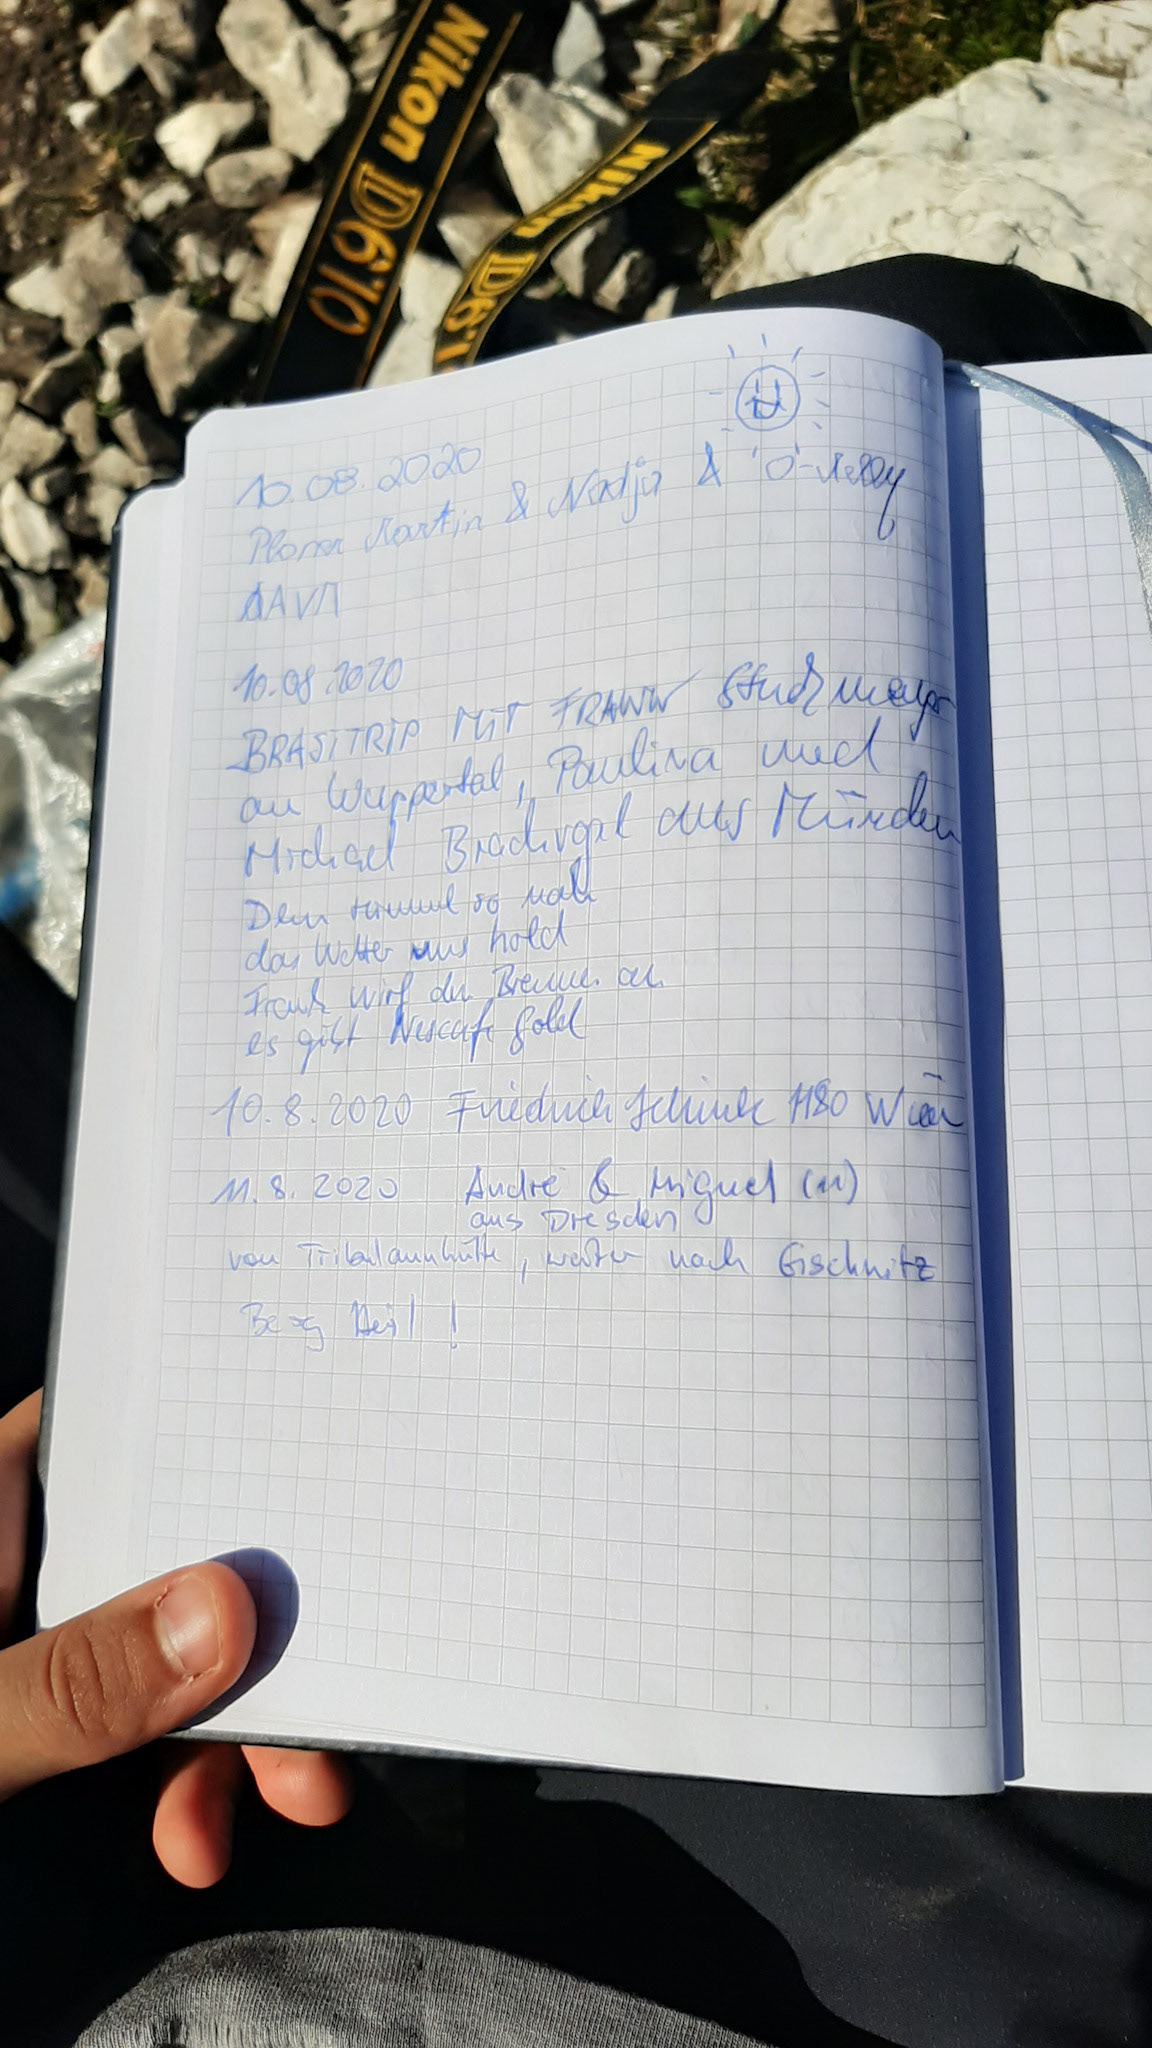 Nikon D610
Nikon D61
10.08.2020
Martin & Nadja &
AAVM
10.08.2020
MIT
Wuppertal, Paulina und
Michael Brachvogel aus München
Dem Himmel so nah
das Wetter uns hold
Frank wirf den Brenner an
es gibt Nescafe Gold
10.8.2020 Friedrich Schink 1180 Wien
11.8.2020 André & Miguel (11)
aus Dresden
von Tribulaunhütte, weiter nach Gschnitz
Berg Heil!